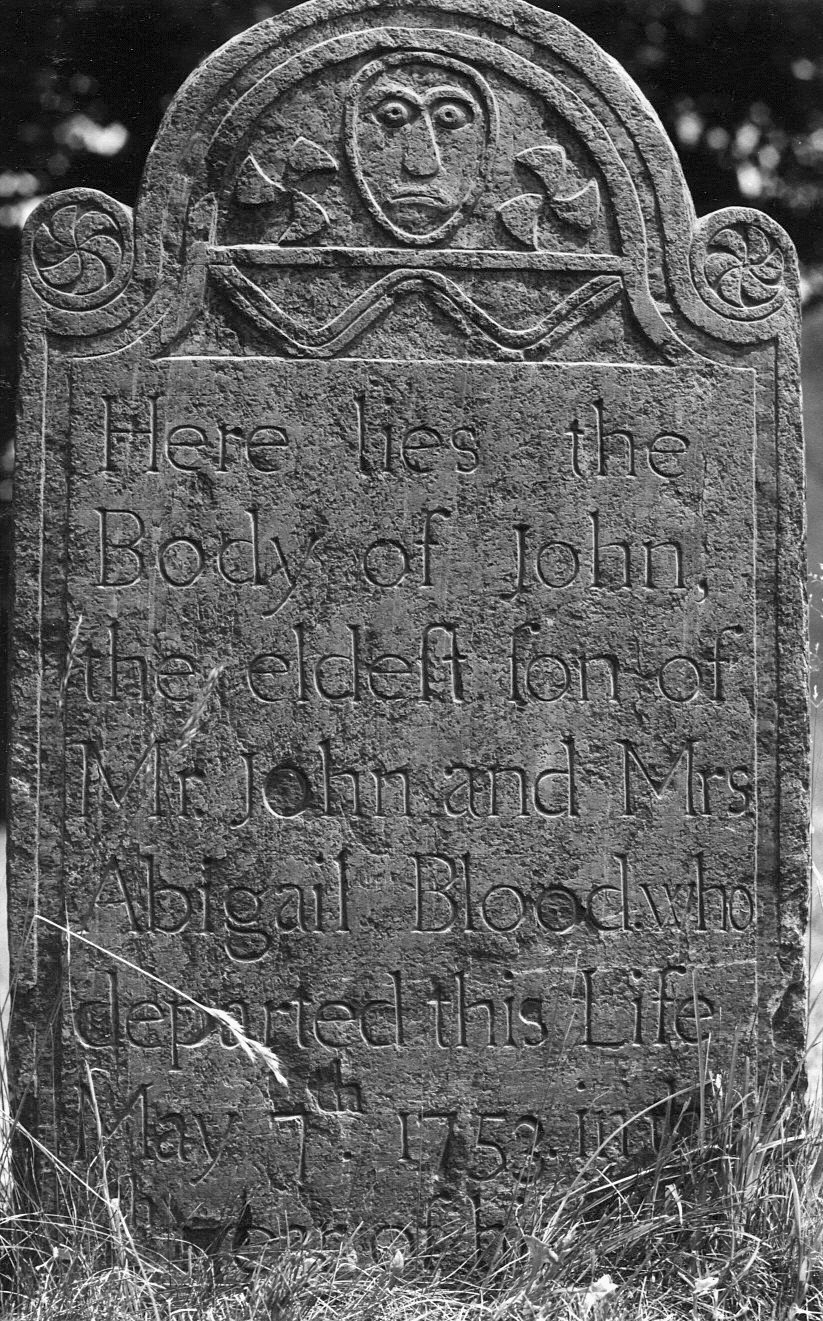 Here lies the
Body of John,
the eldeſt ſon of
Mr John and Mrs
Abigail Blood.who
departed this Life
May 7th. 1753. in th
year of h